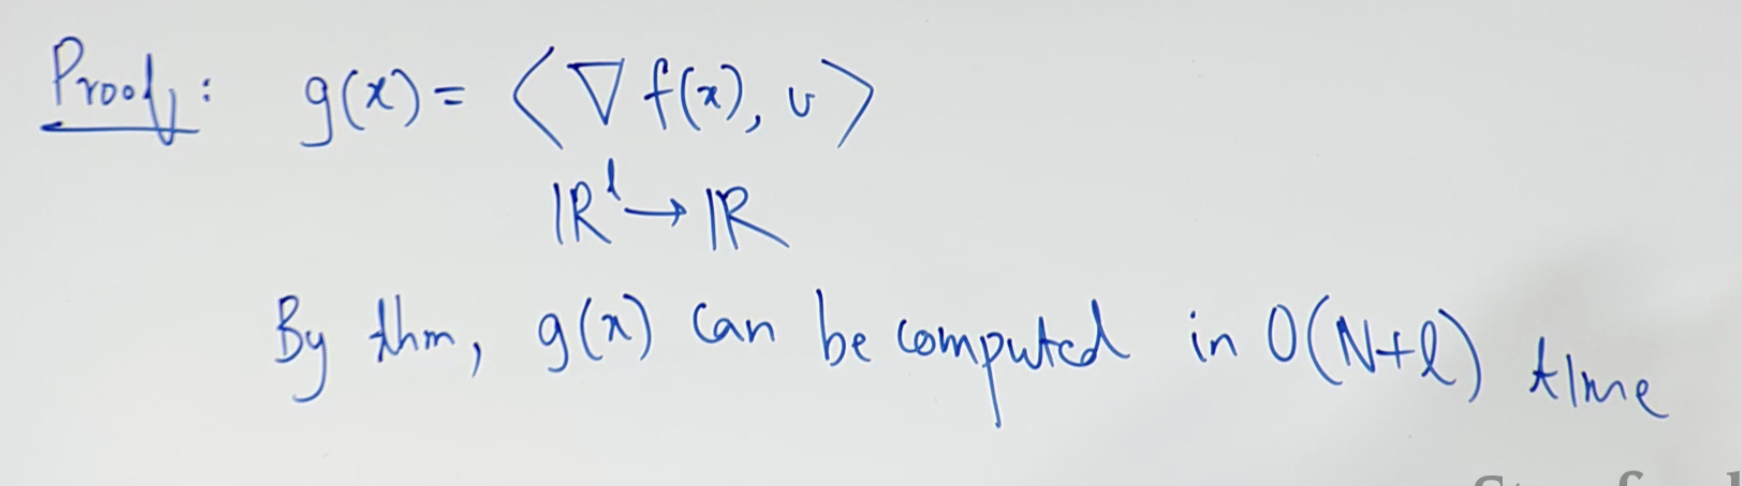 Proof: g(x) = ⟨∇f(x), v⟩
ℝˡ → ℝ
By thm, g(x) can be computed in O(N+ℓ) time